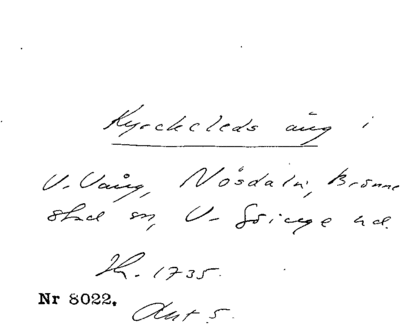 Kyrckeleds äng i
V. Vång, Nösdala, Brönne
stad sn, V. Göinge hd.
Lh. 1735.
Nr 8022. Akt 5.